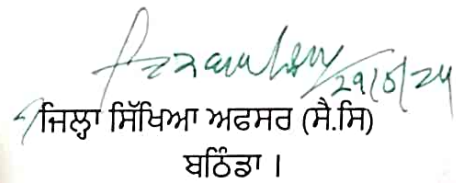 29/5/24
ਜਿਲ੍ਹਾ ਸਿੱਖਿਆ ਅਫਸਰ (ਸੈ.ਸਿ)
ਬਠਿੰਡਾ ।